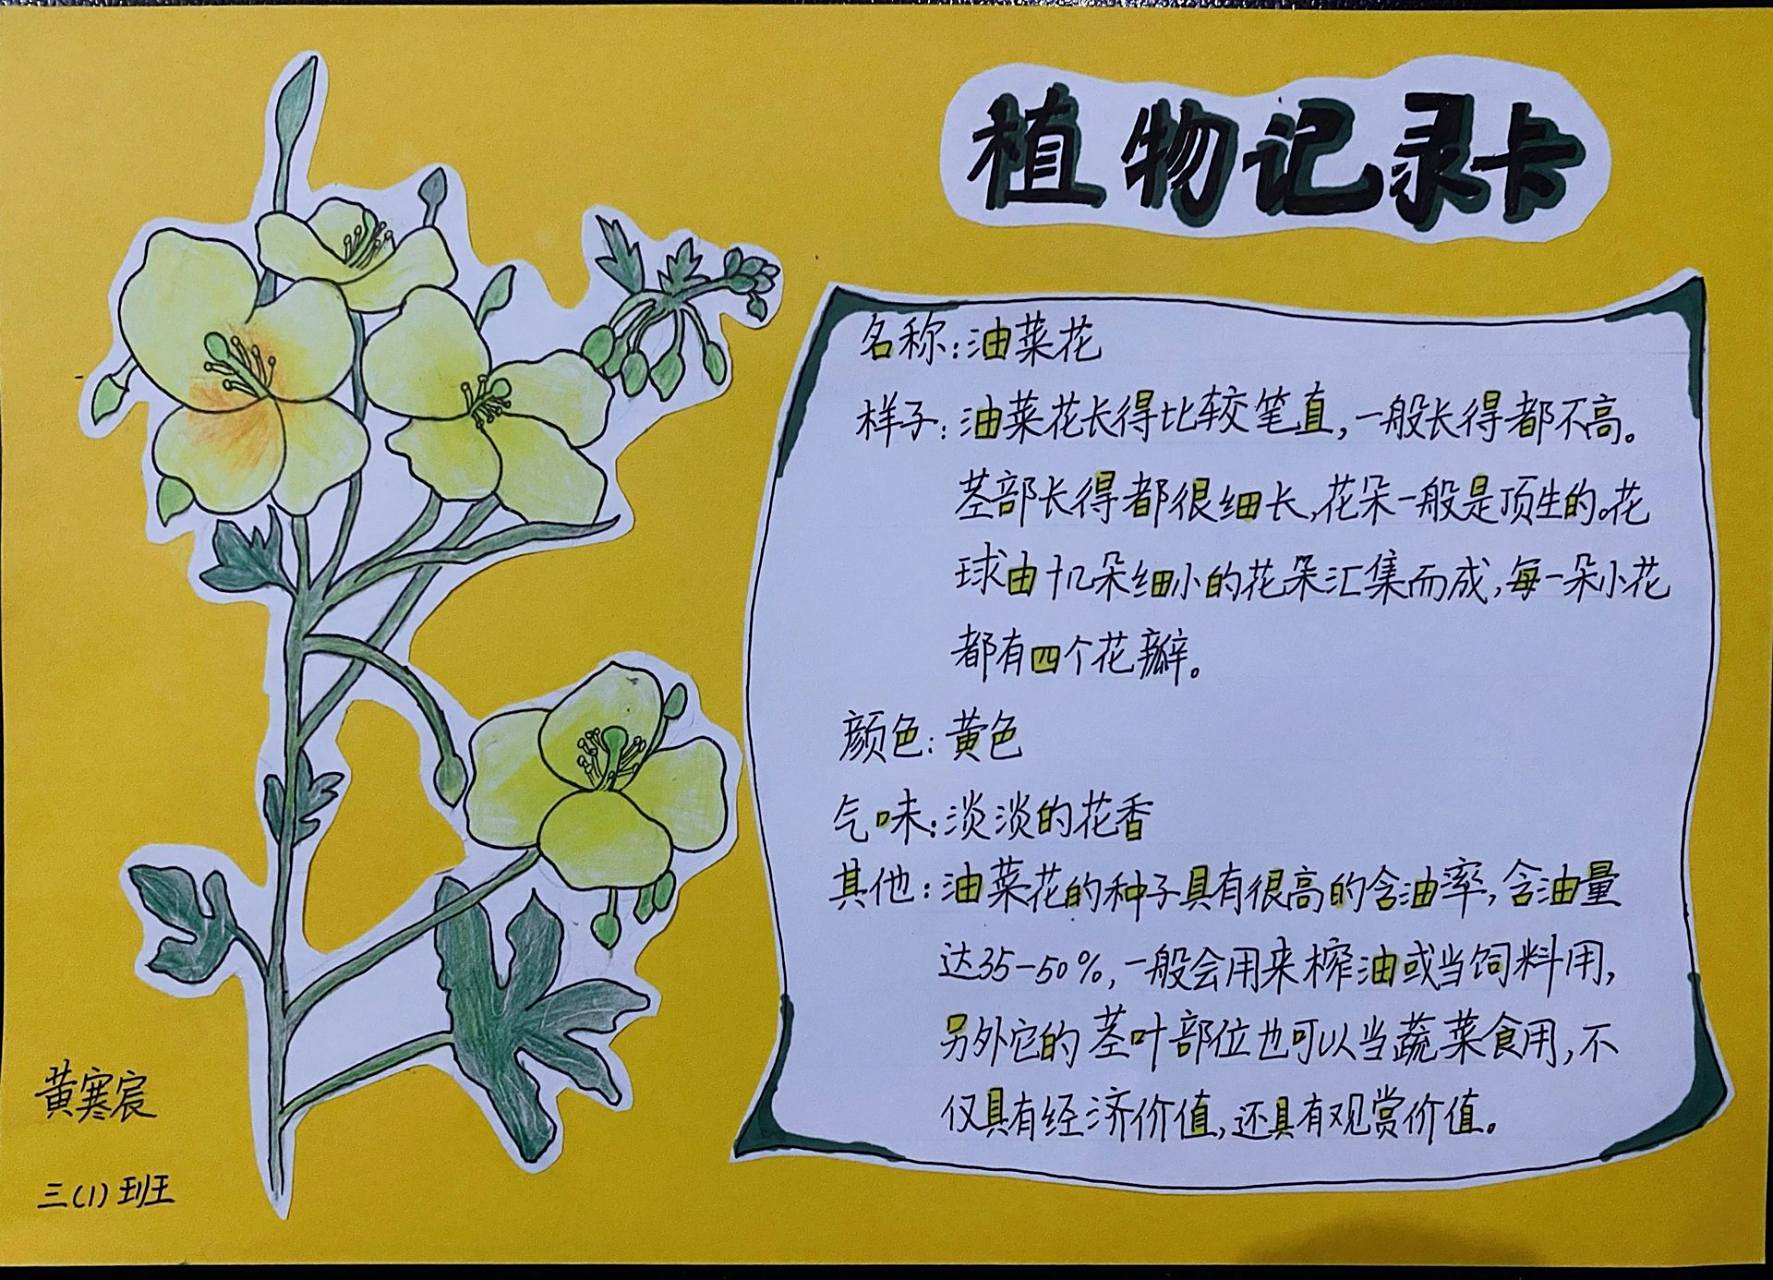 植物记录卡
名称:油菜花
样子:油菜花长得比较笔直,一般长得都不高。
茎部长得都很细长,花朵一般是顶生的。花
球由十几朵细小的花朵汇集而成,每一朵小花
都有四个花瓣。
颜色:黄色
气味:淡淡的花香
其他:油菜花的种子具有很高的含油率,含油量
达35-50%,一般会用来榨油或当饲料用,
另外它的茎叶部位也可以当蔬菜食用,不
仅具有经济价值,还具有观赏价值。
黄寒宸
三(1)班